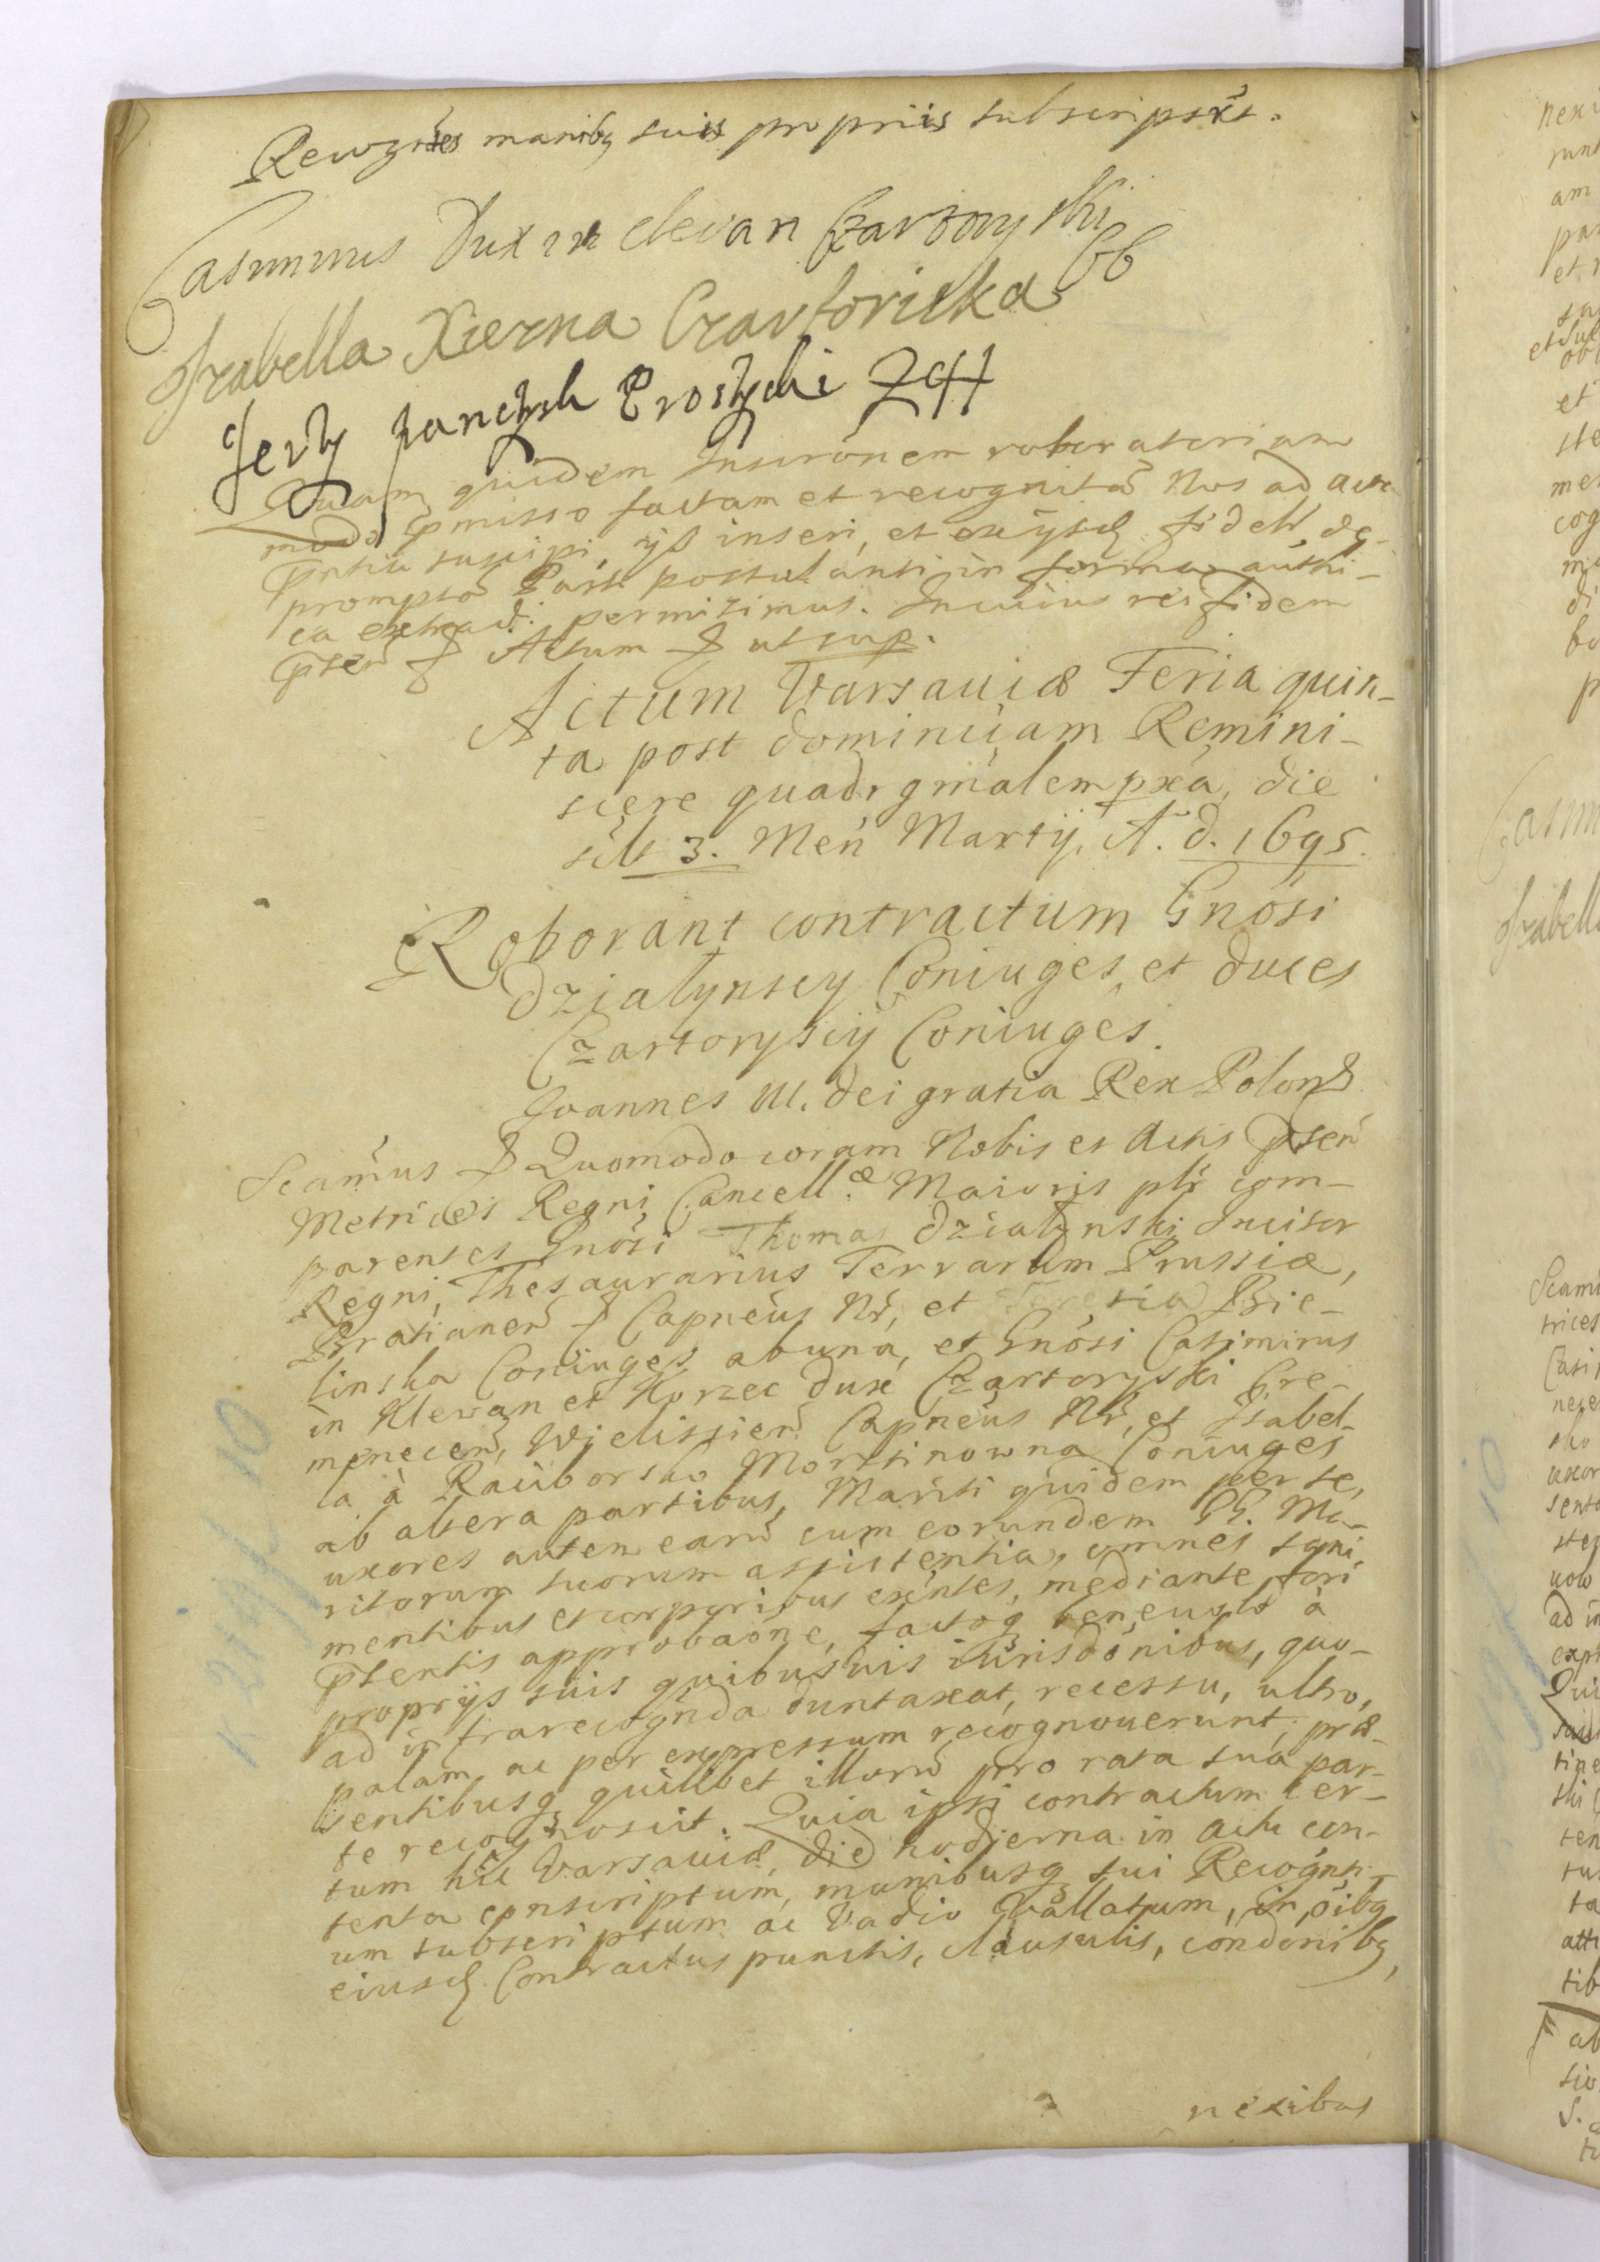 Recogntes manibq suis propriis subscripsrt.
Casimirus Dux in Klevan Czartoryski
Izabella Xiezna Czartoriska
Jerzy
Quam quidem Inscrõnem roboratoriam
modo p̃misso factam et recognitã Nos ad acta
p̃ntia suscipi, ijs inseri, et ex ijsd fideli de-
promptã Parti postulanti in forma authi-
ca extradi permisimus. In cuius rei fidem
p̃sen & Actum & ut sup.
Actum Varsauiæ Feria quin-
ta post dominicam Remini-
scere quadrgmalem pxa, die
scilt 3. Men Martij. A. d. 1695.
Roborant contractum Gnosi
Dzialynscy Coniuges, et duces
Czartoryscij Coniuges.
Joannes III. dei gratia Rex Polon &
Scamus & Quomodo coram Nobis et Actis p̃sen
Metrices Regni Cancell.æ Maioris plr com-
parentes Gnosi Thomas Dzialynski Incisor
Regni, Thesaurarius Terrarum Prussiæ,
Bratianen & Capneus Nr, et Teresia Bie-
linska Coniuges ab una, et Gnosi Casimirus
in Klewan et Korzec dux Czartoryski Cre-
menecen, Wielissien Capneus Nr, et Isabel-
la à Raciborsko Morstinowna Coniuges
ab altera partibus, Mariti quidem per se,
uxores autem earũ cum eorundem GG. Ma-
ritorum suorum assistentia, omnes sani,
mentibus et corporibus exntes, mediante fori
p̃sentis approbaõne, factoq beneuolo à
proprijs suis quibusuis iurisdõnibus, quo-
ad infrarecognda duntaxat, recessu, ultro,
palam, ac per expressum recognouerunt, præ-
sentibusq quilibet illorũ pro rata sua par-
te recognoscit. Quia ipsi contractum cer-
tum hic Varsauiæ, die hodierna in actu con-
tenta conscriptum, manibusq sui Recognti-
um subscriptum ac Vadio Vallatum, in oibq
eiusd Contractus punctis, clausulis, condõnibq,
nexibus